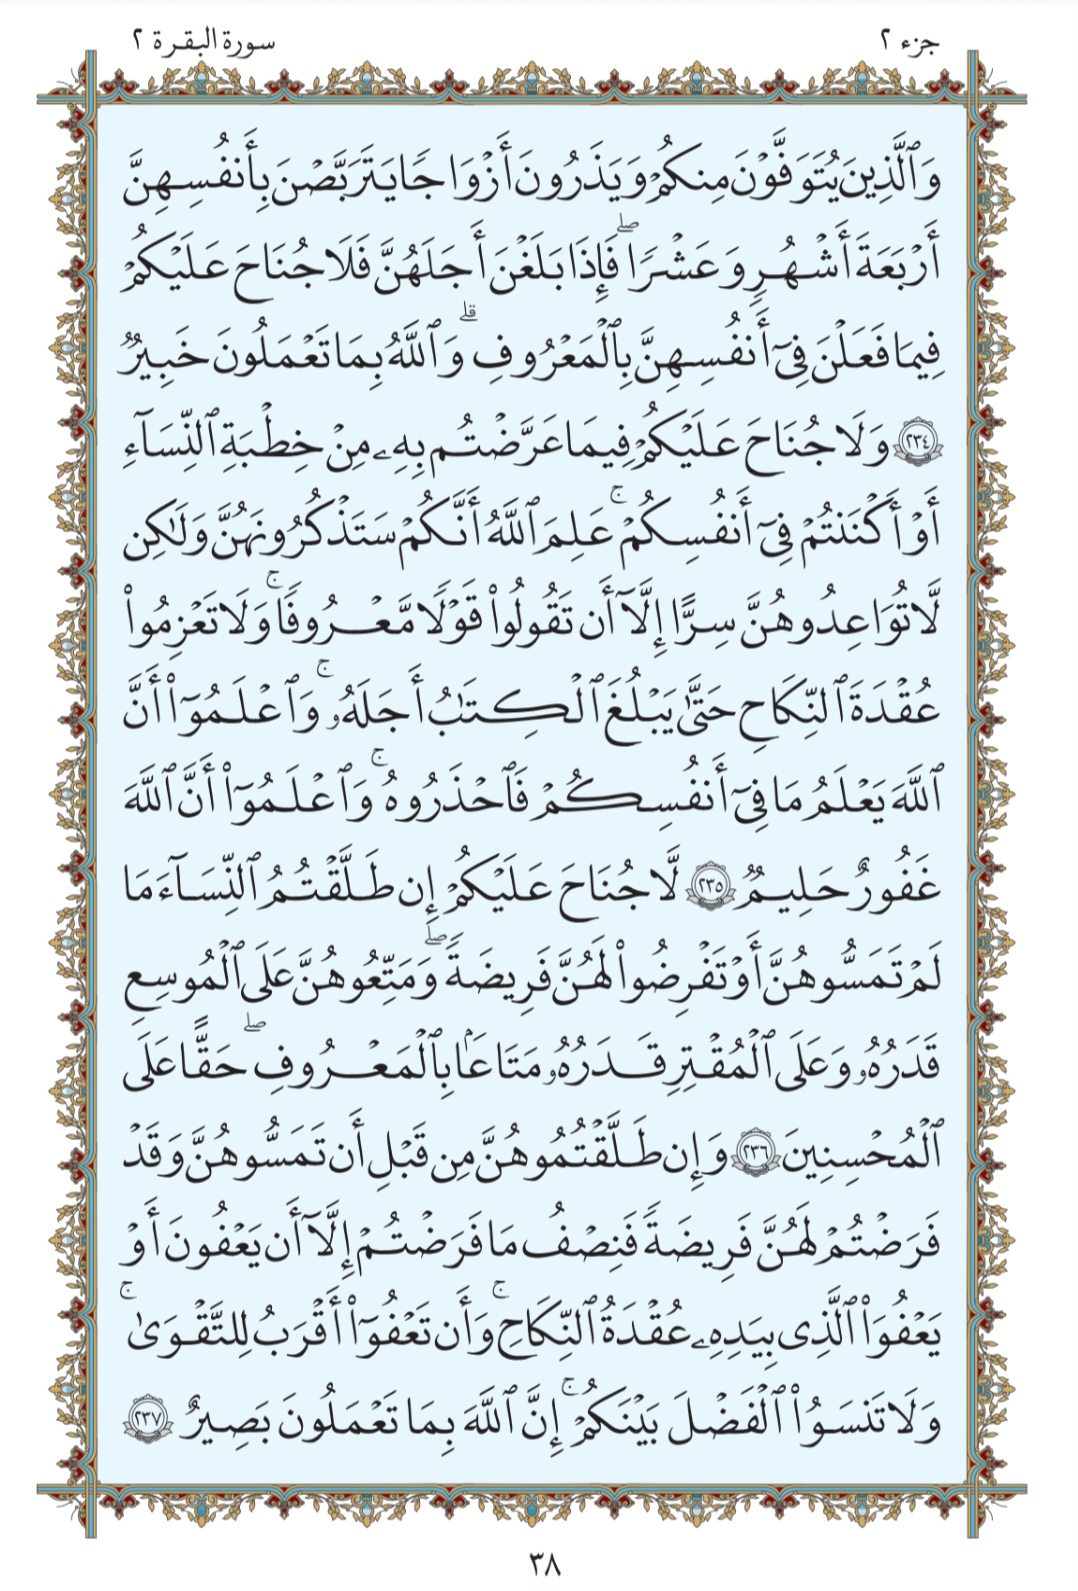 جزء ٢
سورة البقرة ٢
وَٱلَّذِينَ يُتَوَفَّوْنَ مِنكُمْ وَيَذَرُونَ أَزْوَٰجًا يَتَرَبَّصْنَ بِأَنفُسِهِنَّ
أَرْبَعَةَ أَشْهُرٍ وَعَشْرًا ۖ فَإِذَا بَلَغْنَ أَجَلَهُنَّ فَلَا جُنَاحَ عَلَيْكُمْ
فِيمَا فَعَلْنَ فِىٓ أَنفُسِهِنَّ بِٱلْمَعْرُوفِ ۗ وَٱللَّهُ بِمَا تَعْمَلُونَ خَبِيرٌ
٢٣٤ وَلَا جُنَاحَ عَلَيْكُمْ فِيمَا عَرَّضْتُم بِهِۦ مِنْ خِطْبَةِ ٱلنِّسَآءِ
أَوْ أَكْنَنتُمْ فِىٓ أَنفُسِكُمْ ۚ عَلِمَ ٱللَّهُ أَنَّكُمْ سَتَذْكُرُونَهُنَّ وَلَٰكِن
لَّا تُوَاعِدُوهُنَّ سِرًّا إِلَّآ أَن تَقُولُوا۟ قَوْلًا مَّعْرُوفًا ۚ وَلَا تَعْزِمُوا۟
عُقْدَةَ ٱلنِّكَاحِ حَتَّىٰ يَبْلُغَ ٱلْكِتَٰبُ أَجَلَهُۥ ۚ وَٱعْلَمُوٓا۟ أَنَّ
ٱللَّهَ يَعْلَمُ مَا فِىٓ أَنفُسِكُمْ فَٱحْذَرُوهُ ۚ وَٱعْلَمُوٓا۟ أَنَّ ٱللَّهَ
غَفُورٌ حَلِيمٌ ٢٣٥ لَّا جُنَاحَ عَلَيْكُمْ إِن طَلَّقْتُمُ ٱلنِّسَآءَ مَا
لَمْ تَمَسُّوهُنَّ أَوْ تَفْرِضُوا۟ لَهُنَّ فَرِيضَةً ۖ وَمَتِّعُوهُنَّ عَلَى ٱلْمُوسِعِ
قَدَرُهُۥ وَعَلَى ٱلْمُقْتِرِ قَدَرُهُۥ مَتَاعًۢا بِٱلْمَعْرُوفِ ۖ حَقًّا عَلَى
ٱلْمُحْسِنِينَ ٢٣٦ وَإِن طَلَّقْتُمُوهُنَّ مِن قَبْلِ أَن تَمَسُّوهُنَّ وَقَدْ
فَرَضْتُمْ لَهُنَّ فَرِيضَةً فَنِصْفُ مَا فَرَضْتُمْ إِلَّآ أَن يَعْفُونَ أَوْ
يَعْفُوَا۟ ٱلَّذِى بِيَدِهِۦ عُقْدَةُ ٱلنِّكَاحِ ۚ وَأَن تَعْفُوٓا۟ أَقْرَبُ لِلتَّقْوَىٰ ۚ
وَلَا تَنسَوُا۟ ٱلْفَضْلَ بَيْنَكُمْ ۚ إِنَّ ٱللَّهَ بِمَا تَعْمَلُونَ بَصِيرٌ ٢٣٧
٣٨